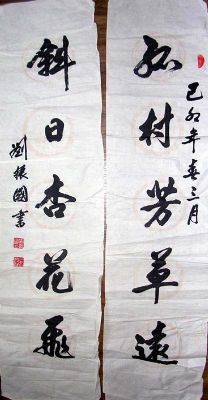 己卯年春三月
孤村芳草遠
斜日杏花飛
劉振國書